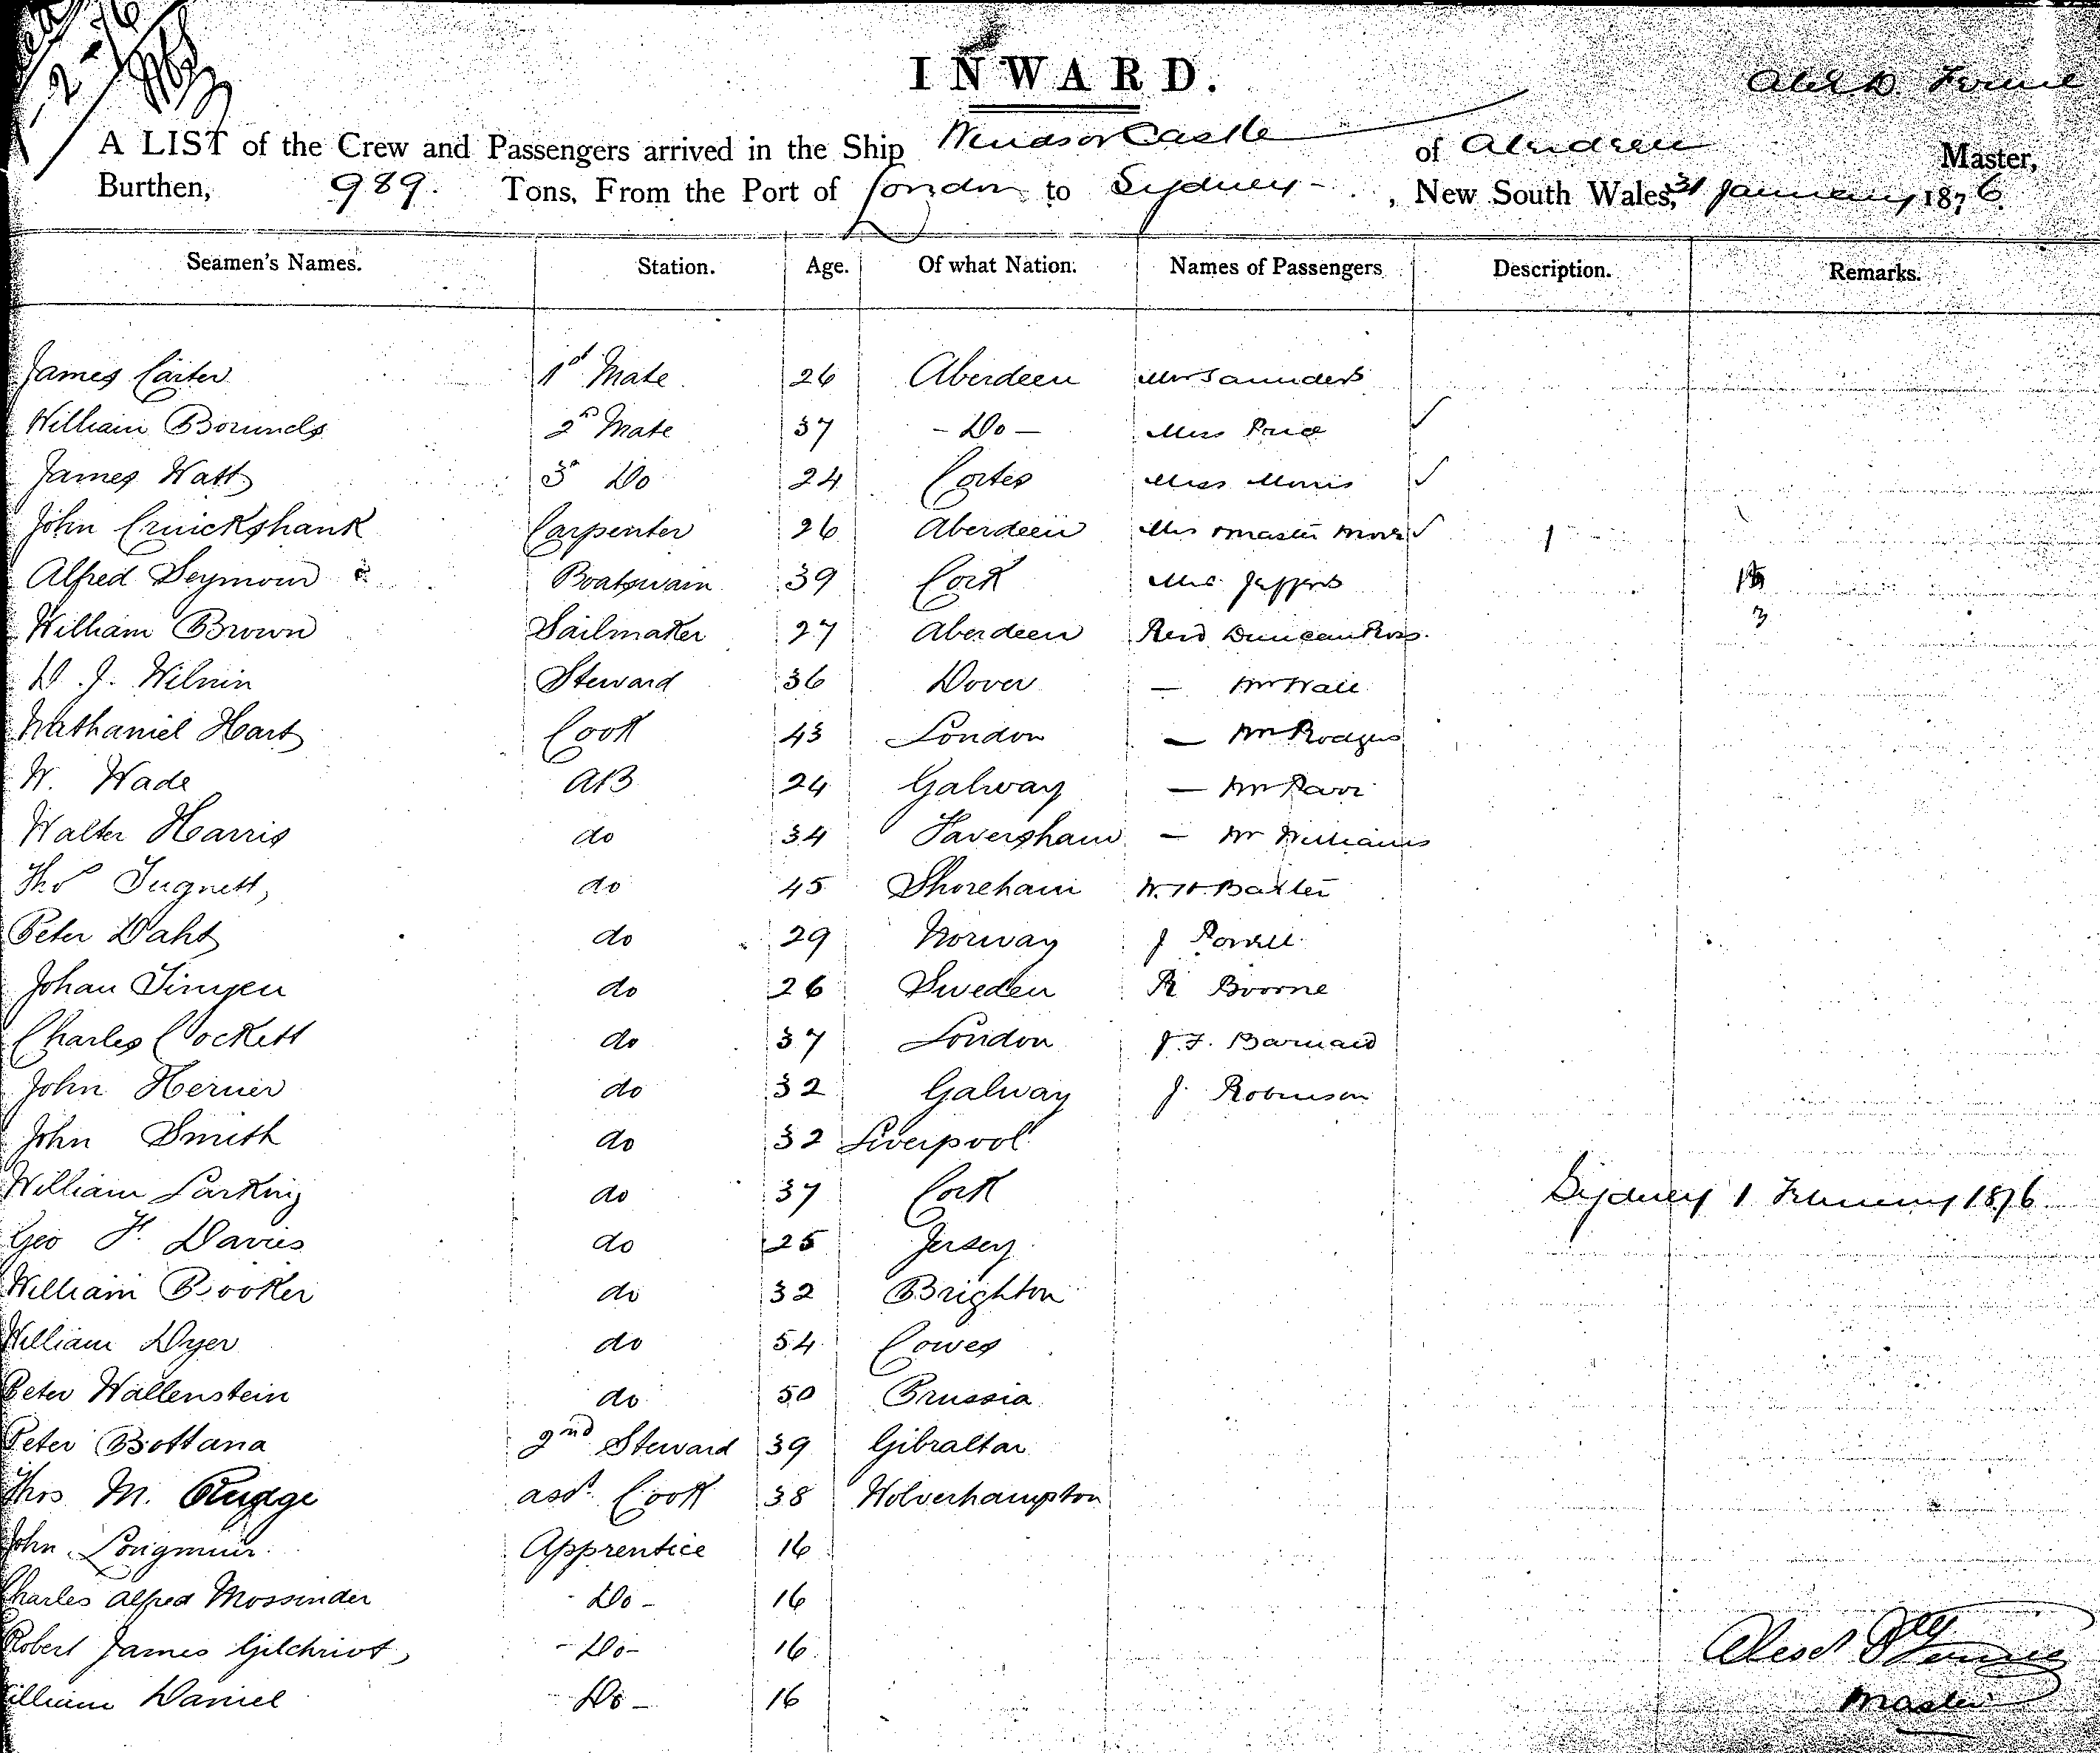 INWARD.
A LIST of the Crew and Passengers arrived in the Ship Windsor Castle of Aberdeen Master,
Burthen, 989. Tons, From the Port of London to Sydney - , New South Wales, 31 January 1876
Seamen's Names. Station. Age. Of what Nation. Names of Passengers Description. Remarks.
James Carter 1st Mate 26 Aberdeen Mr Saunders
William 2nd Mate 37 - Do - Miss Price ✓
James Watt 3d Do 24 Miss Morris ✓
John Cruickshank Carpenter 26 Aberdeen Mrs & Master ✓ 1
Alfred Seymour Boatswain 39 Cork Mrs.
William Brown Sailmaker 27 Aberdeen Revd Duncan Ross. 3
Steward 36 Dover — Mr
Nathaniel Hart Cook 43 London — Mr Rodgers
W. Wade AB 24 Galway — Mr
Walter Harris do 34 Faversham — Mr Williams
Thos do 45 Shoreham W. H. Baxter
Peter do 29 Norway J Powell
Johan do 26 Sweden R Boorne
Charles Cockett do 37 London J. F. Barnard
John do 32 Galway J. Robinson
John Smith do 32 Liverpool
William Larking do 37 Cork Sydney 1 February 1876
Geo F. Davies do 25 Jersey
William Booker do 32 Brighton
William Dyer do 54 Cowes
Peter Wallenstein do 50 Prussia
Peter Bottana 2nd Steward 39 Gibraltar
Thos M. Rudge asst. Cook 38 Wolverhampton
John Longmuir Apprentice 16
Charles Alfred Mossinder - Do - 16
Robert James Gilchrist - Do - 16
William Daniel - Do - 16
Master